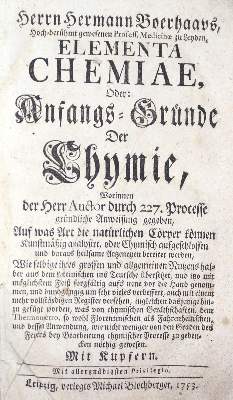 Herrn Hermann Boerhaavs,
Hoch-berühmt gewesenen Profess. Medicinæ zu Leyden,
ELEMENTA
CHEMIAE,
Oder:
Anfangs-Gründe
Der
Chymie,
Worinnen
der Herr Auctor durch 227. Processe
gründliche Anweisung gegeben,
Auf was Art die natürlichen Cörper können
Kunstmäßig analysirt, oder Chymisch aufgeschlossen
und daraus heilsame Artzeneyen bereitet werden,
Wie selbige ihres grossen und allgemeinen Nutzens hal-
ber aus dem Lateinischen ins Teutsche übersetzet, und itzo mit
möglichstem Fleiß sorgfältig aufs neue vor die Hand genom-
men, und durchgängig um sehr vieles verbessert, auch mit einem
mehr vollständigen Register versehen, ingleichen dasjenige hin-
zu gefüget worden, was von chymischen Geräthschaften, dem
Thermometro, so wohl Florentinischen als Fahrenheitischen,
und dessen Anwendung, wie nicht weniger von den Graden des
Feuers bey Bearbeitung chymischer Processe zu geden-
cken nöthig gewesen.
Mit Kupfern.
Mit allergnädigsten Privilegio.
Leipzig, verlegts Michael Blochberger, 1753.